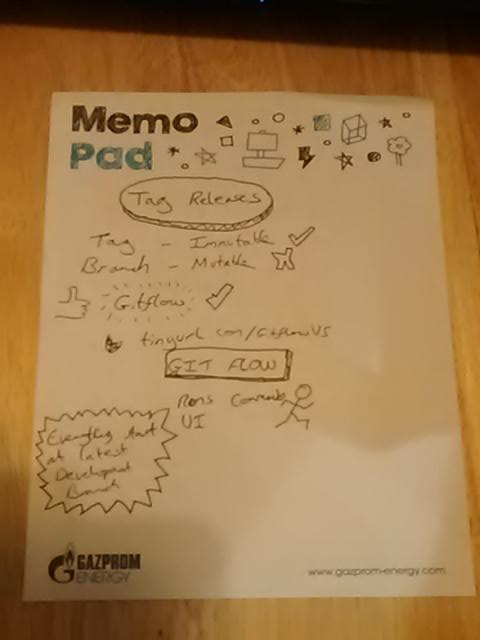 Memo
Pad
Tag Releases
Tag - Immutable
Branch - Mutable
Gitflow
tinyurl.com/GitflowVS
GIT FLOW
Runs Commands
UI
Everything start
at latest
Development
Branch
GAZPROM
ENERGY
www.gazprom-energy.com